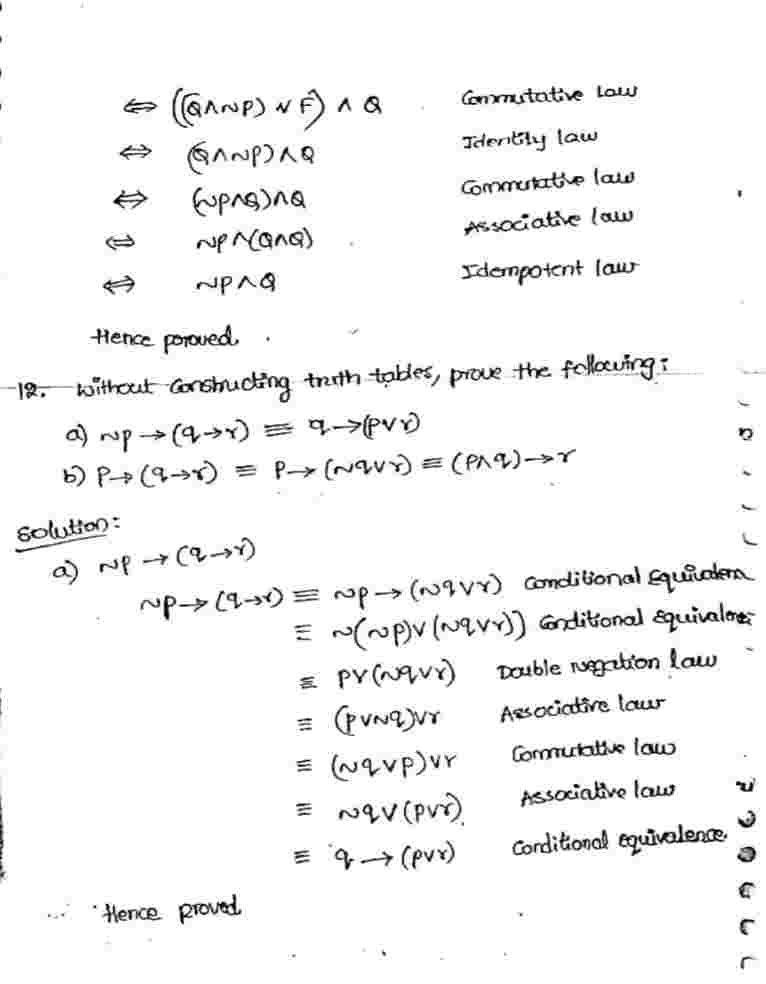 ⇔ ((Q∧~P) ∨ F) ∧ Q Commutative law
⇔ (Q∧~P)∧Q Identity law
⇔ (~P∧Q)∧Q Commutative law
⇔ ~P∧(Q∧Q) Associative law
⇔ ~P∧Q Idempotent law
Hence poroved.
12. Without Constructing truth tables, prove the following:
a) ~p → (q→r) ≡ q→(p∨r)
b) P→(q→r) ≡ P→(~q∨r) ≡ (P∧q)→r
Solution:
a) ~p → (q→r)
~p→(q→r) ≡ ~p→(~q∨r) Conditional Equivalen
≡ ~(~p)∨(~q∨r)) Conditional Equivalen
≡ p∨(~q∨r) Double negation law
≡ (p∨~q)∨r Associative law
≡ (~q∨p)∨r Commutative law
≡ ~q∨(p∨r) Associative law
≡ q→(p∨r) Conditional equivalence
Hence proved